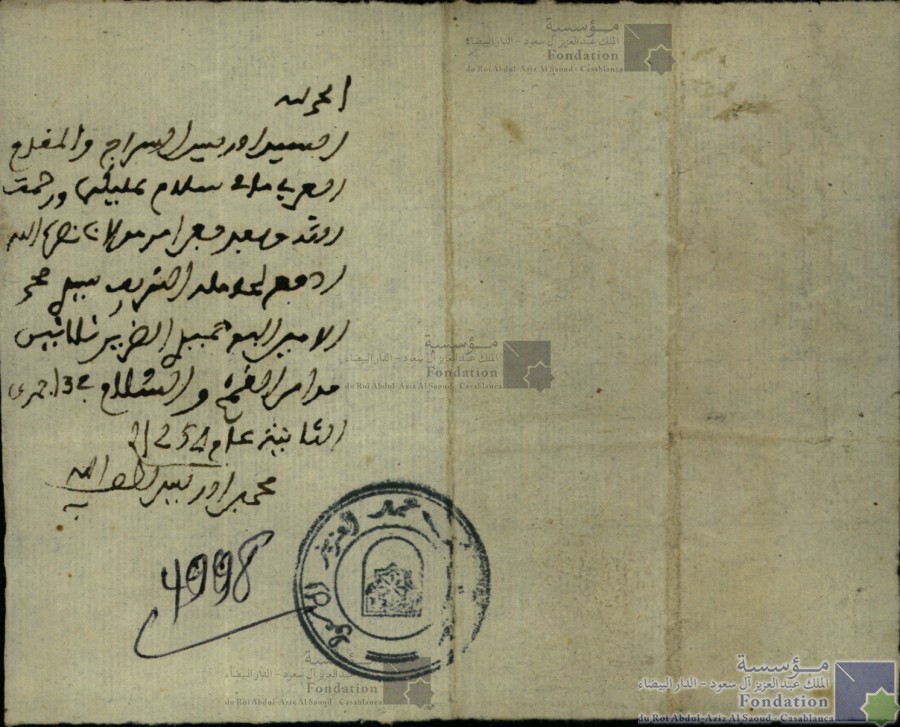 الحمد لله
السيد ادريس السراج والمقدم
العربي سلام عليكم ورحمت
الله وبعد فعن امر مولانا نصره الله
ادفع لحامله الشريف سيدي محمد
الامين
من القمح والسلام في 13 جمدى
الثانية عام 1254
محمد ادريس لطف الله به
4998
عبد العزيز
مؤسسة
الملك عبد العزيز آل سعود - الدار البيضاء
Fondation
du Roi Abdul-Aziz Al Saoud - Casablanca
مؤسسة
الملك عبد العزيز آل سعود - الدار البيضاء
Fondation
du Roi Abdul-Aziz Al Saoud - Casablanca
مؤسسة
الملك عبد العزيز آل سعود - الدار البيضاء
Fondation
du Roi Abdul-Aziz Al Saoud - Casablanca
مؤسسة
الملك عبد العزيز آل سعود - الدار البيضاء
Fondation
du Roi Abdul-Aziz Al Saoud - Casablanca